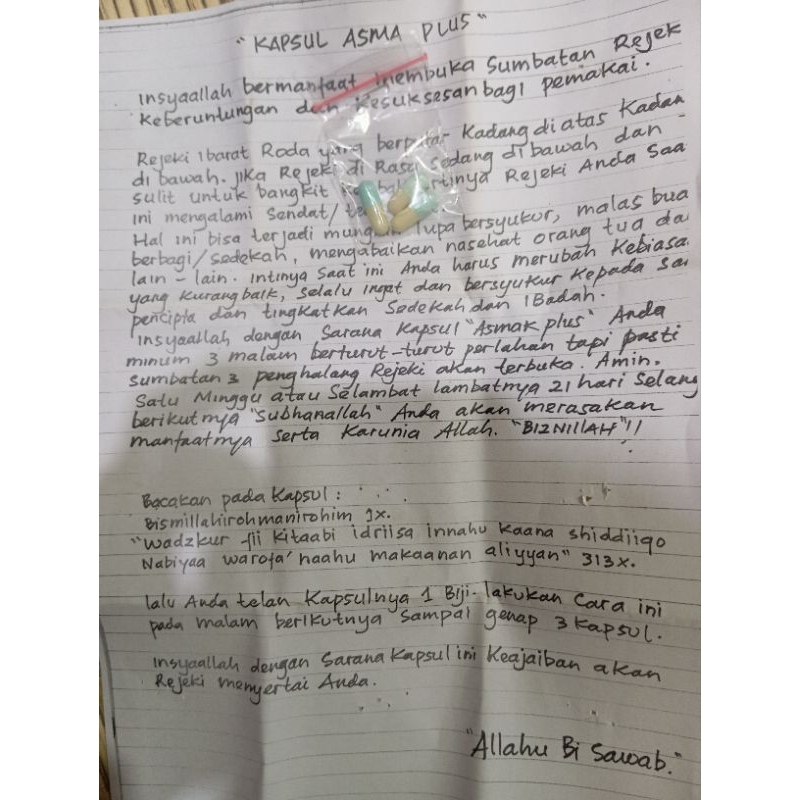 "KAPSUL ASMA PLUS"
Insyaallah bermanfaat membuka Sumbatan Rejek
Keberuntungan dan Kesuksesan bagi pemakai.
Rejeki Ibarat Roda yang berputar Kadang di atas Kadan
di bawah. Jika Rejeki di Rasa Sedang di bawah dan -
sulit untuk bangkit artinya Rejeki Anda Saa
ini mengalami Sendat/
Hal ini bisa terjadi mungkin lupa bersyukur, malas bua
berbagi/sedekah, mengabaikan nasehat orang tua da
lain - lain. Intinya Saat ini Anda harus merubah Kebiasa
yang kurang baik, Selalu ingat dan bersyukur Kepada Sa
pencipta dan tingkatkan Sedekah dan IBadah.
Insyaallah dengan Sarana Kapsul "Asmak plus" Anda
minum 3 malam berturut-turut perlahan tapi pasti
Sumbatan 3 penghalang Rejeki akan terbuka. Amin.
Satu Minggu atau Selambat lambatnya 21 hari Selang
berikutnya "Subhanallah" Anda akan merasakan
manfaatnya serta Karunia Allah. "BIZNILLAH"!!
Bacakan pada Kapsul :
Bismillahirohmanirohim 1x.
"Wadzkur fii kitaabi idriisa innahu kaana shiddiiqo
Nabiyaa warofa'naahu makaanan aliyyan" 313x.
lalu Anda telan Kapsulnya 1 Biji. lakukan Cara ini
pada malam berikutnya Sampai genap 3 Kapsul.
Insyaallah dengan Sarana Kapsul ini Keajaiban akan
Rejeki menyertai Anda.
"Allahu Bi Sawab."